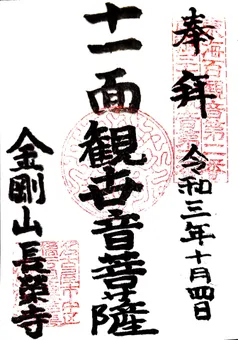 奉拝
令和三年十月四日
十一面観世音菩薩
金剛山長榮寺